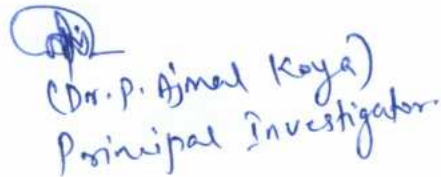 (Dr. P. Ajmal Koya)
Principal Investigator.